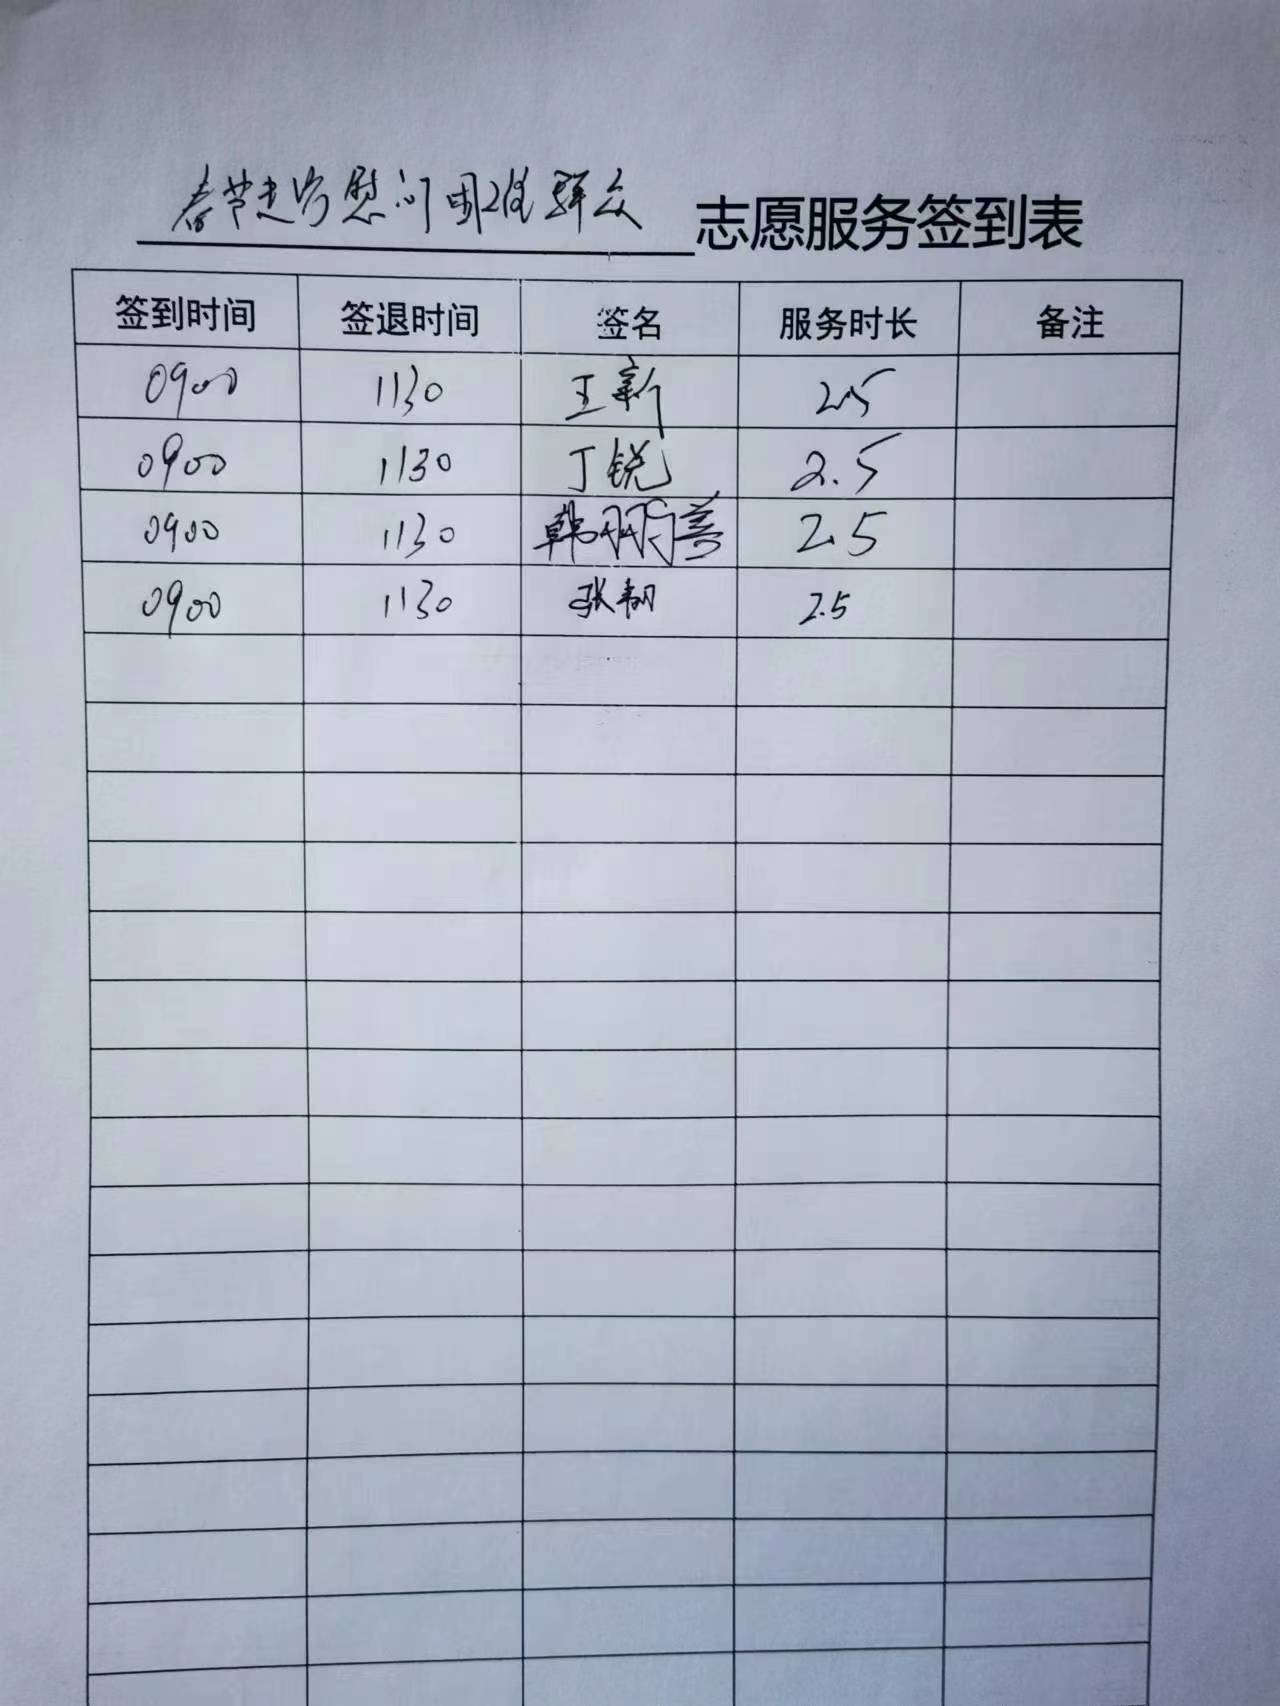 春节走访慰问困难群众 志愿服务签到表
签到时间 签退时间 签名 服务时长 备注
0900 1130 王新 2.5
0900 1130 丁锐 2.5
0900 1130 韩 2.5
0900 1130 张 2.5